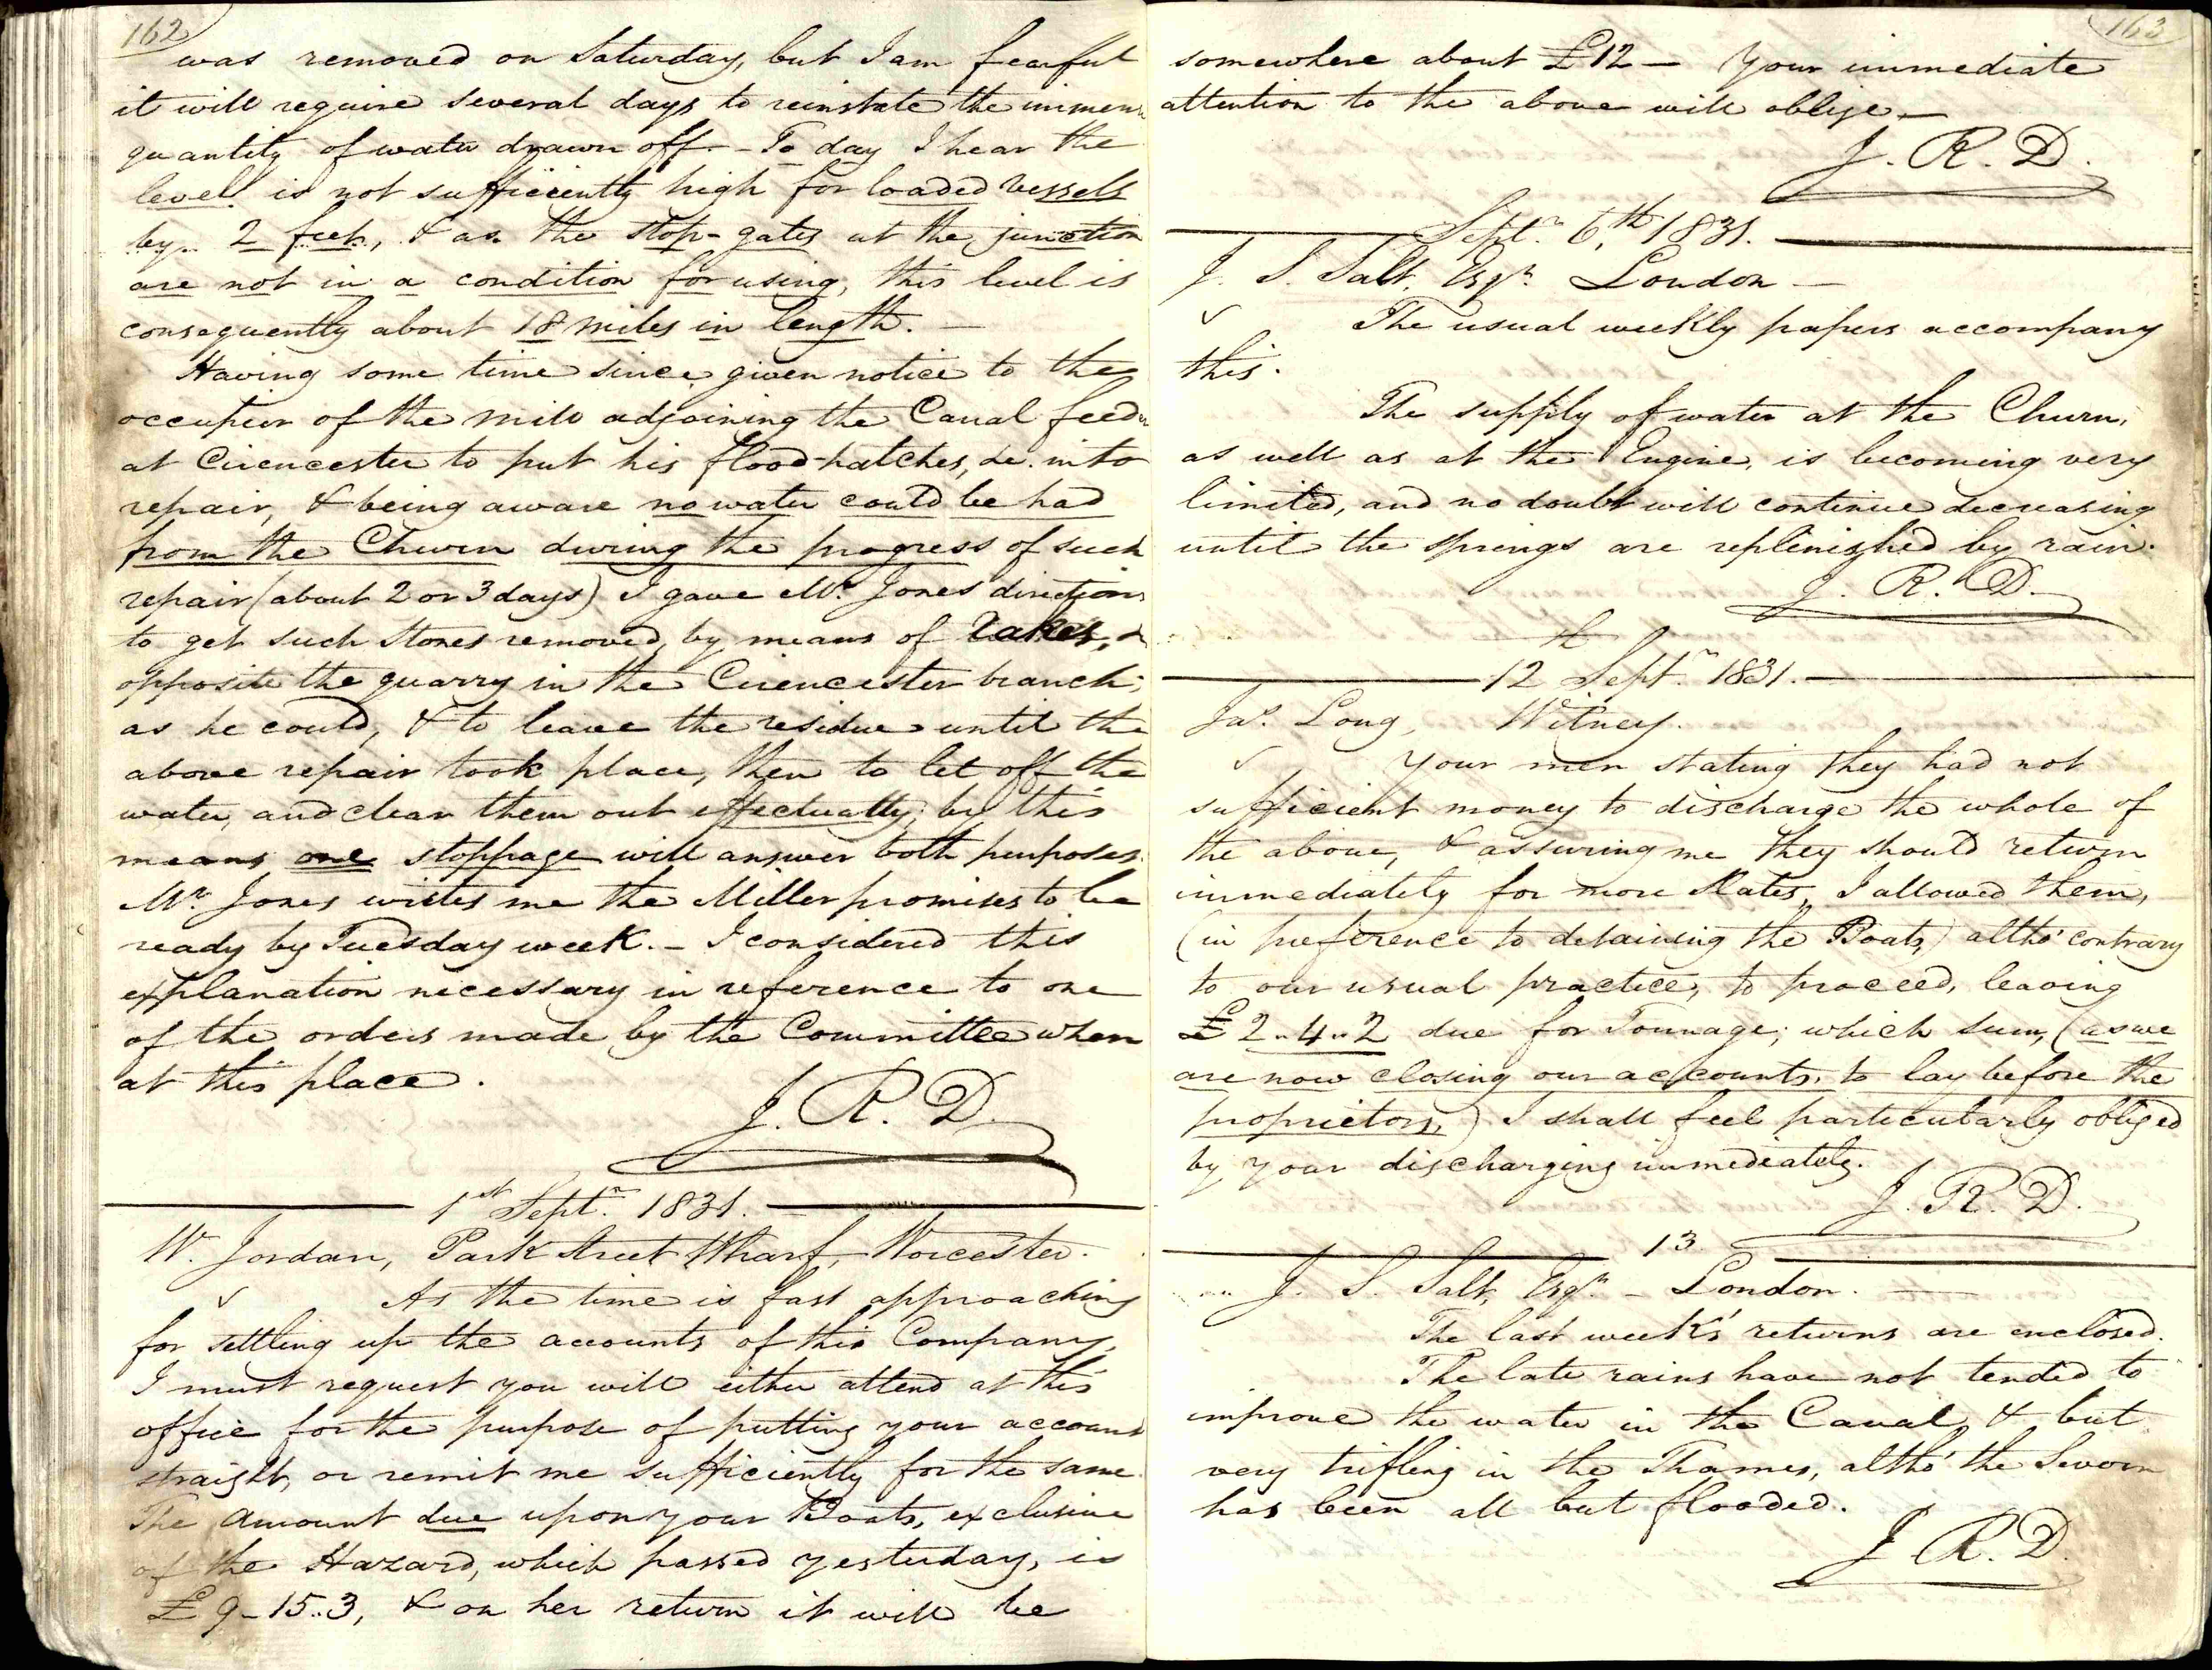 162
was removed on Saturday, but I am fearful
it will require several days to reinstate the immen
quantity of water drawn off. - To day I hear the
level is not sufficiently high for loaded vessels
by 2 feet, & as the stop-gates at the junction
are not in a condition for using, this level is
consequently about 18 miles in length. —
Having some time since given notice to the
occupier of the mill adjoining the Canal feeder
at Cirencester to put his flood-hatches, &c. into
repair, & being aware no water could be had
from the Churn during the progress of such
repair (about 2 or 3 days) I gave Mr. Jones directions
to get such stones removed, by means of rakes, &
opposite the quarry in the Cirencester branch;
as he could, & to leave the residue until the
above repair took place, then to let off the
water, and clear them out effectually; by this
means one stoppage will answer both purposes.
Mr. Jones writes me the Miller promises to be
ready by Tuesday week. - I considered this
explanation necessary in reference to one
of the orders made by the Committee when
at this place.
J. R. D.
1st Septr. 1831.
W. Jordan, Park Street Wharf, Worcester.
As the time is fast approaching
for settling up the accounts of this Company,
I must request you will either attend at this
office for the purpose of putting your account
straight, or remit me sufficiently for the same.
The amount due upon your Boats, exclusive
of the Hazard, which passed yesterday, is
£9-15..3, & on her return it will be
163
somewhere about £12 — Your immediate
attention to the above will oblige —
J. R. D.
Septr. 6th 1831.
J. S. Salt, Esqr. London —
The usual weekly papers accompany
this.
The supply of water at the Churn,
as well as at the Engine, is becoming very
limited, and no doubt will continue decreasing
until the springs are replenished by rain.
J. R. D.
12th Septr. 1831.
Jas. Long, Witney.
Your men stating they had not
sufficient money to discharge the whole of
the above, & assuring me they should return
immediately for more Slates, I allowed them,
(in preference to detaining the Boats,) altho' contrary
to our usual practice, to proceed, leaving
£2..4..2 due for Tonnage; which sum, (as we
are now closing our accounts, to lay before the
proprietors,) I shall feel particularly obliged
by your discharging immediately.
J. R. D.
13.
J. S. Salt, Esqr. - London. —
The last week's returns are enclosed.
The late rains have not tended to
improve the water in the Canal, & but
very trifling in the Thames, altho' the Severn
has been all but flooded.
J. R. D.